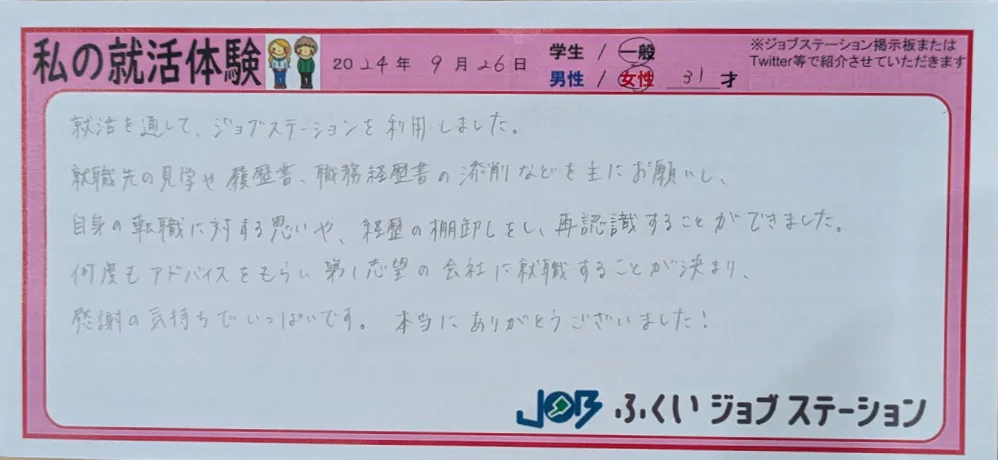 私の就活体験
2024年 9月26日
学生 / 一般
男性 / 女性 31才
※ジョブステーション掲示板または
Twitter等で紹介させていただきます
就活を通して、ジョブステーションを利用しました。
就職先の見学や履歴書、職務経歴書の添削などを主にお願いし、
自身の転職に対する思いや、経歴の棚卸しをし、再認識することができました。
何度もアドバイスをもらい第1志望の会社に就職することが決まり、
感謝の気持ちでいっぱいです。本当にありがとうございました!
JOB ふくいジョブステーション